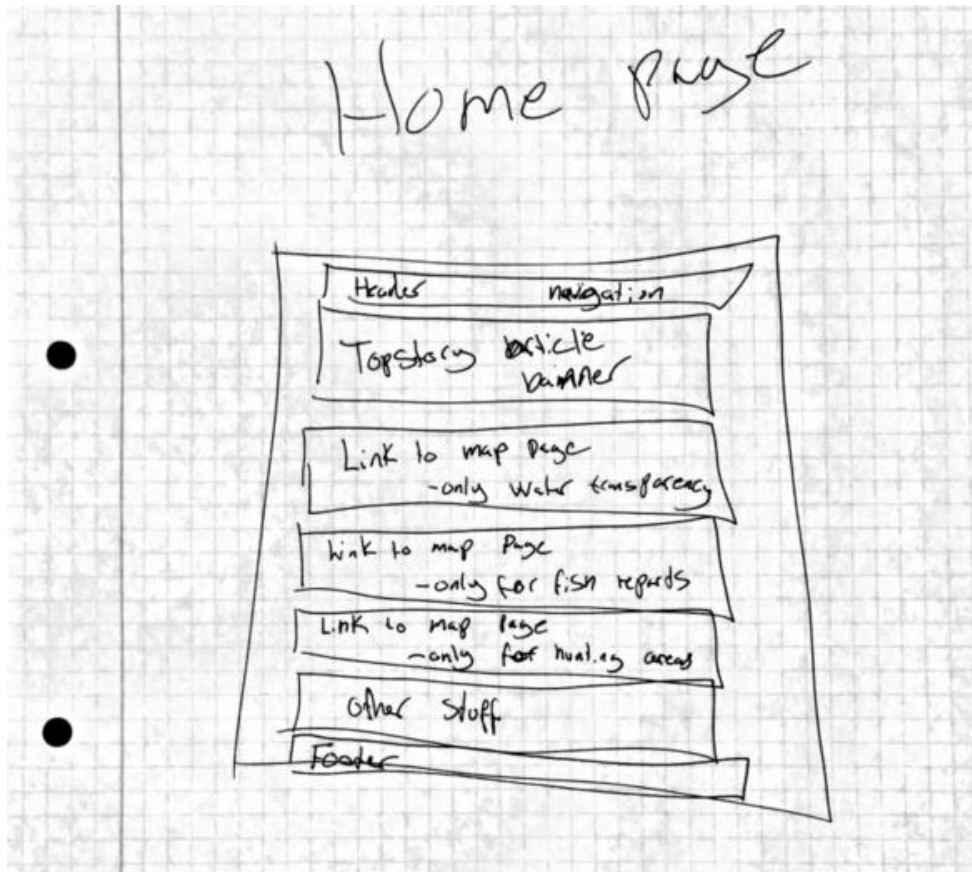 Home page
Header navigation
Top story article
banner
Link to map page
-only water transparency
Link to map Page
-only for fish reports
Link to map Page
-only for hunting areas
other stuff
Footer